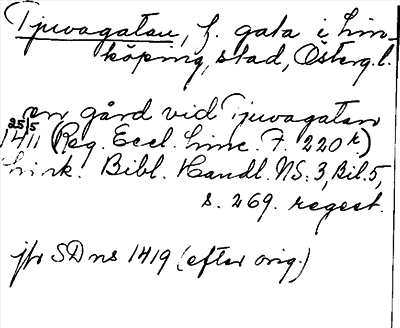 Tjuvagatan, f. gata i Lin-
köping, stad, Österg. l.
en gård vid Tjuvagatan
25/5
1411 (Reg. Eccl. Linc. F. 220 r)
Link. Bibl. Handl. NS. 3, Bil. 5,
s. 269. regest.
jfr SD ns 1419 (efter orig.)